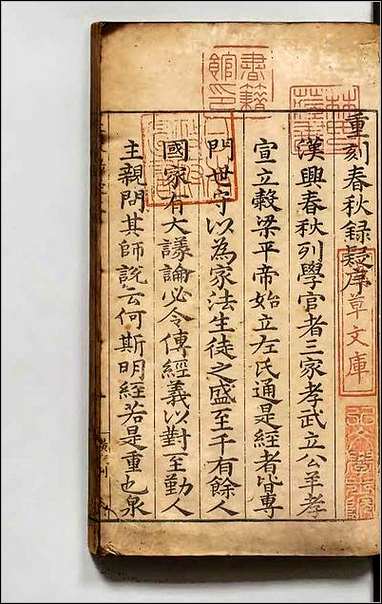 重刻春秋錄疑序
漢興春秋列學官者三家孝武立公羊孝
宣立穀梁平帝始立左氏通是經者皆專
門世守以為家法生徒之盛至千有餘人
國家有大議論必令傳經義以對至勤人
主親問其師說云何斯明經若是重也泉
書籍館印
草文庫